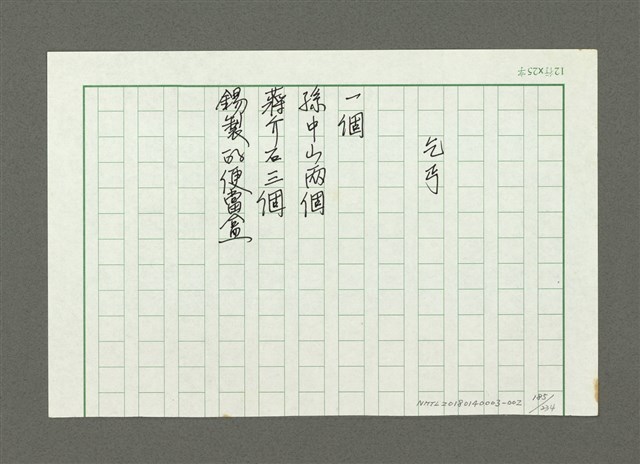 12行×25字
乞丐
一個
孫中山兩個
蔣介石三個
錫製的便當盒
NMTL20180140003-002
185/234